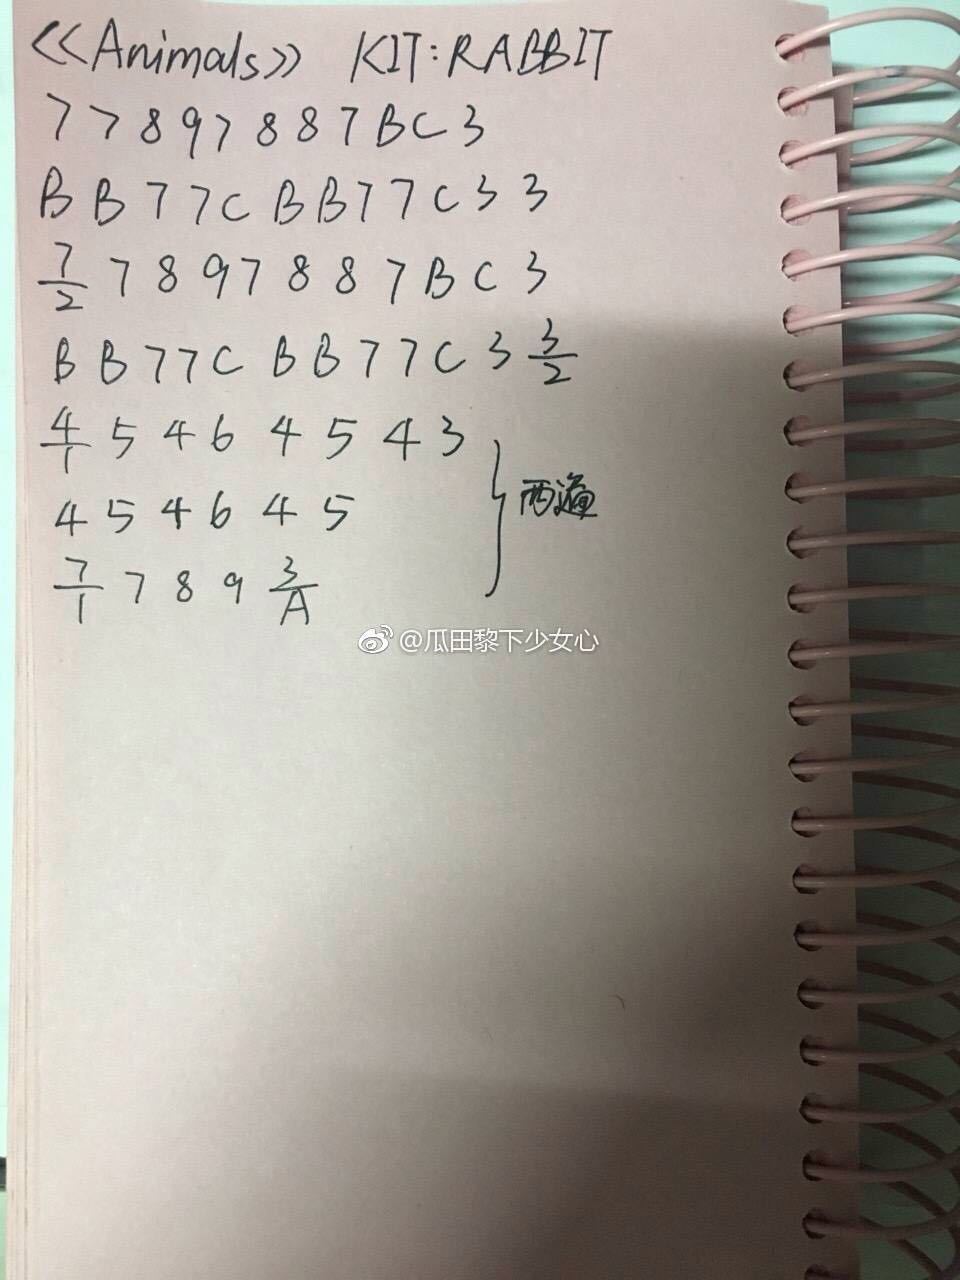 <<Animals>> KIT:RABBIT
7 7 8 9 7 8 8 7 B C 3
B B 7 7 C B B 7 7 C 3 3
7/2 7 8 9 7 8 8 7 B C 3
B B 7 7 C B B 7 7 C 3 3/2
4/1 5 4 6 4 5 4 3
4 5 4 6 4 5
两遍
7/1 7 8 9 3/A
@瓜田黎下少女心